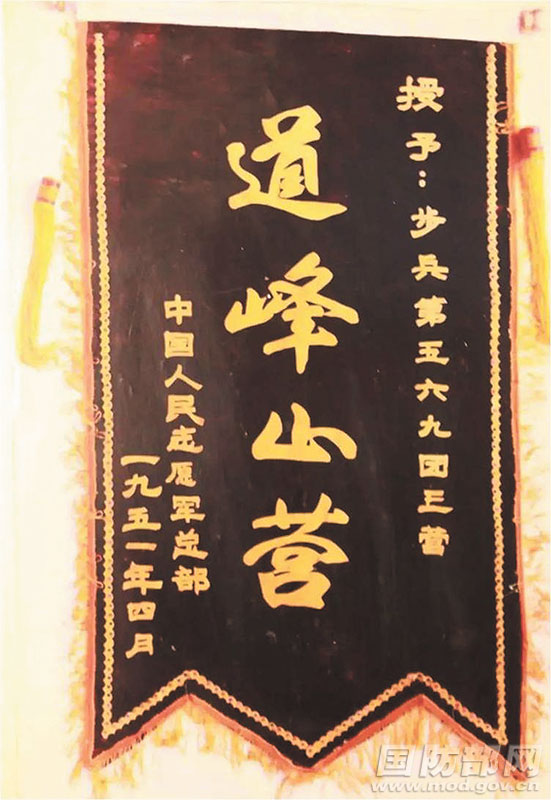 授予：步兵第五六九团三营
道峰山营
中国人民志愿军总部
一九五一年四月
国防部网
www.mod.gov.cn